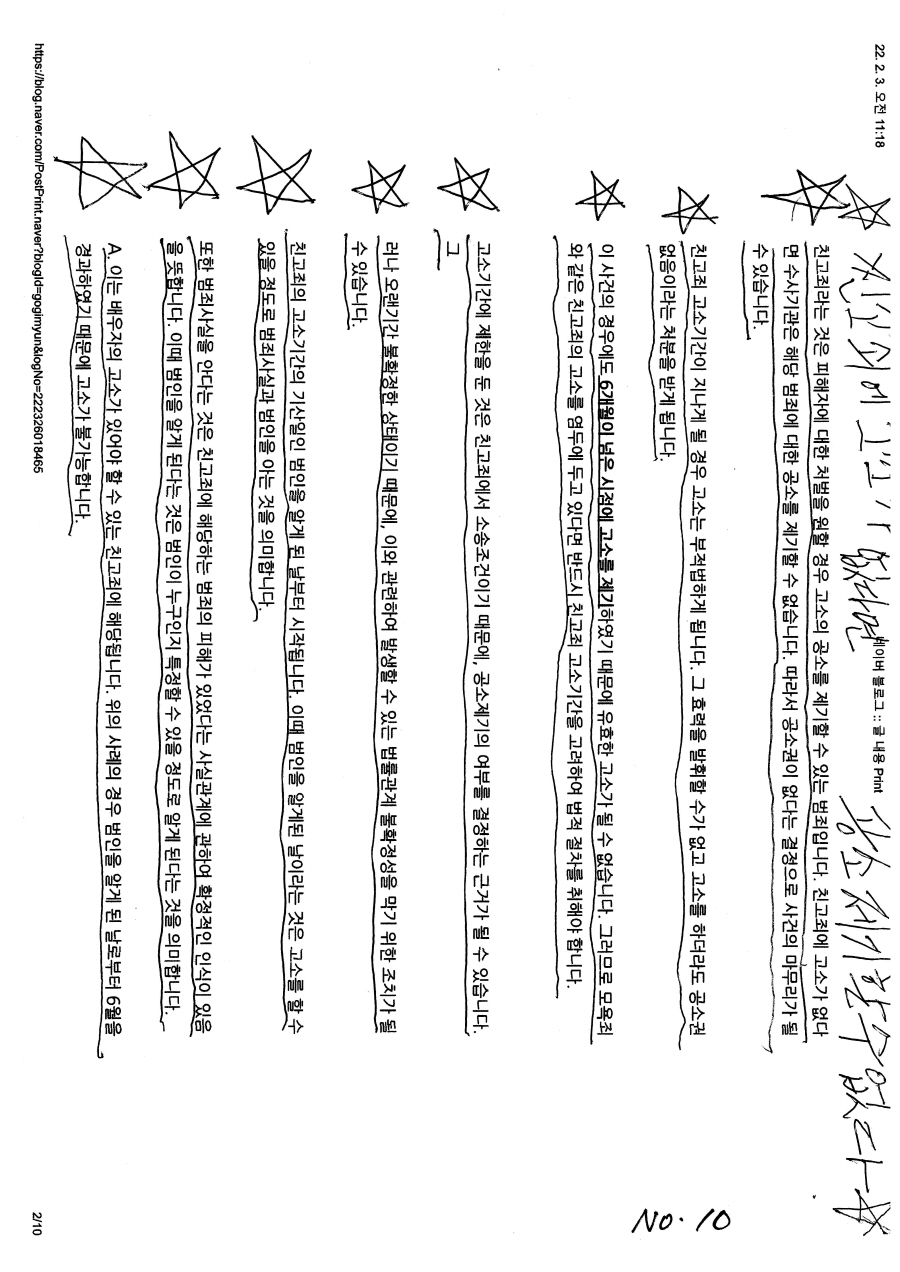 22. 2. 3. 오전 11:18
네이버 블로그 :: 글 내용 Print
친고죄에 고소가 없다면 공소 제기할 수 없다
친고죄라는 것은 피해자에 대한 처벌을 원할 경우 고소의 공소를 제기할 수 있는 범죄입니다. 친고죄에 고소가 없다
면 수사기관은 해당 범죄에 대한 공소를 제기할 수 없습니다. 따라서 공소권이 없다는 결정으로 사건의 마무리가 될
수 있습니다.
친고죄 고소기간이 지나게 될 경우 고소는 부적법하게 됩니다. 그 효력을 발휘할 수가 없고 고소를 하더라도 공소권
없음이라는 처분을 받게 됩니다.
이 사건의 경우에도 6개월이 넘은 시점에 고소를 제기하였기 때문에 유효한 고소가 될 수 없습니다. 그러므로 모욕죄
와 같은 친고죄의 고소를 염두에 두고 있다면 반드시 친고죄 고소기간을 고려하여 법적 절차를 취해야 합니다.
고소기간에 제한을 둔 것은 친고죄에서 소송조건이기 때문에, 공소제기의 여부를 결정하는 근거가 될 수 있습니다.
그
러나 오랜기간 불확정한 상태이기 때문에, 이와 관련하여 발생할 수 있는 법률관계 불확정성을 막기 위한 조치가 될
수 있습니다.
친고죄의 고소기간의 기산일인 범인을 알게 된 날부터 시작됩니다. 이때 범인을 알게된 날이라는 것은 고소를 할 수
있을 정도로 범죄사실과 범인을 아는 것을 의미합니다.
또한 범죄사실을 안다는 것은 친고죄에 해당하는 범죄의 피해가 있었다는 사실관계에 관하여 확정적인 인식이 있음
을 뜻합니다. 이때 범인을 알게 된다는 것은 범인이 누구인지 특정할 수 있을 정도로 알게 된다는 것을 의미합니다.
A. 이는 배우자의 고소가 있어야 할 수 있는 친고죄에 해당됩니다. 위의 사례의 경우 범인을 알게 된 날로부터 6월을
경과하였기 때문에 고소가 불가능합니다.
No. 10
https://blog.naver.com/PostPrint.naver?blogId=gogimyun&logNo=222326018465
2/10